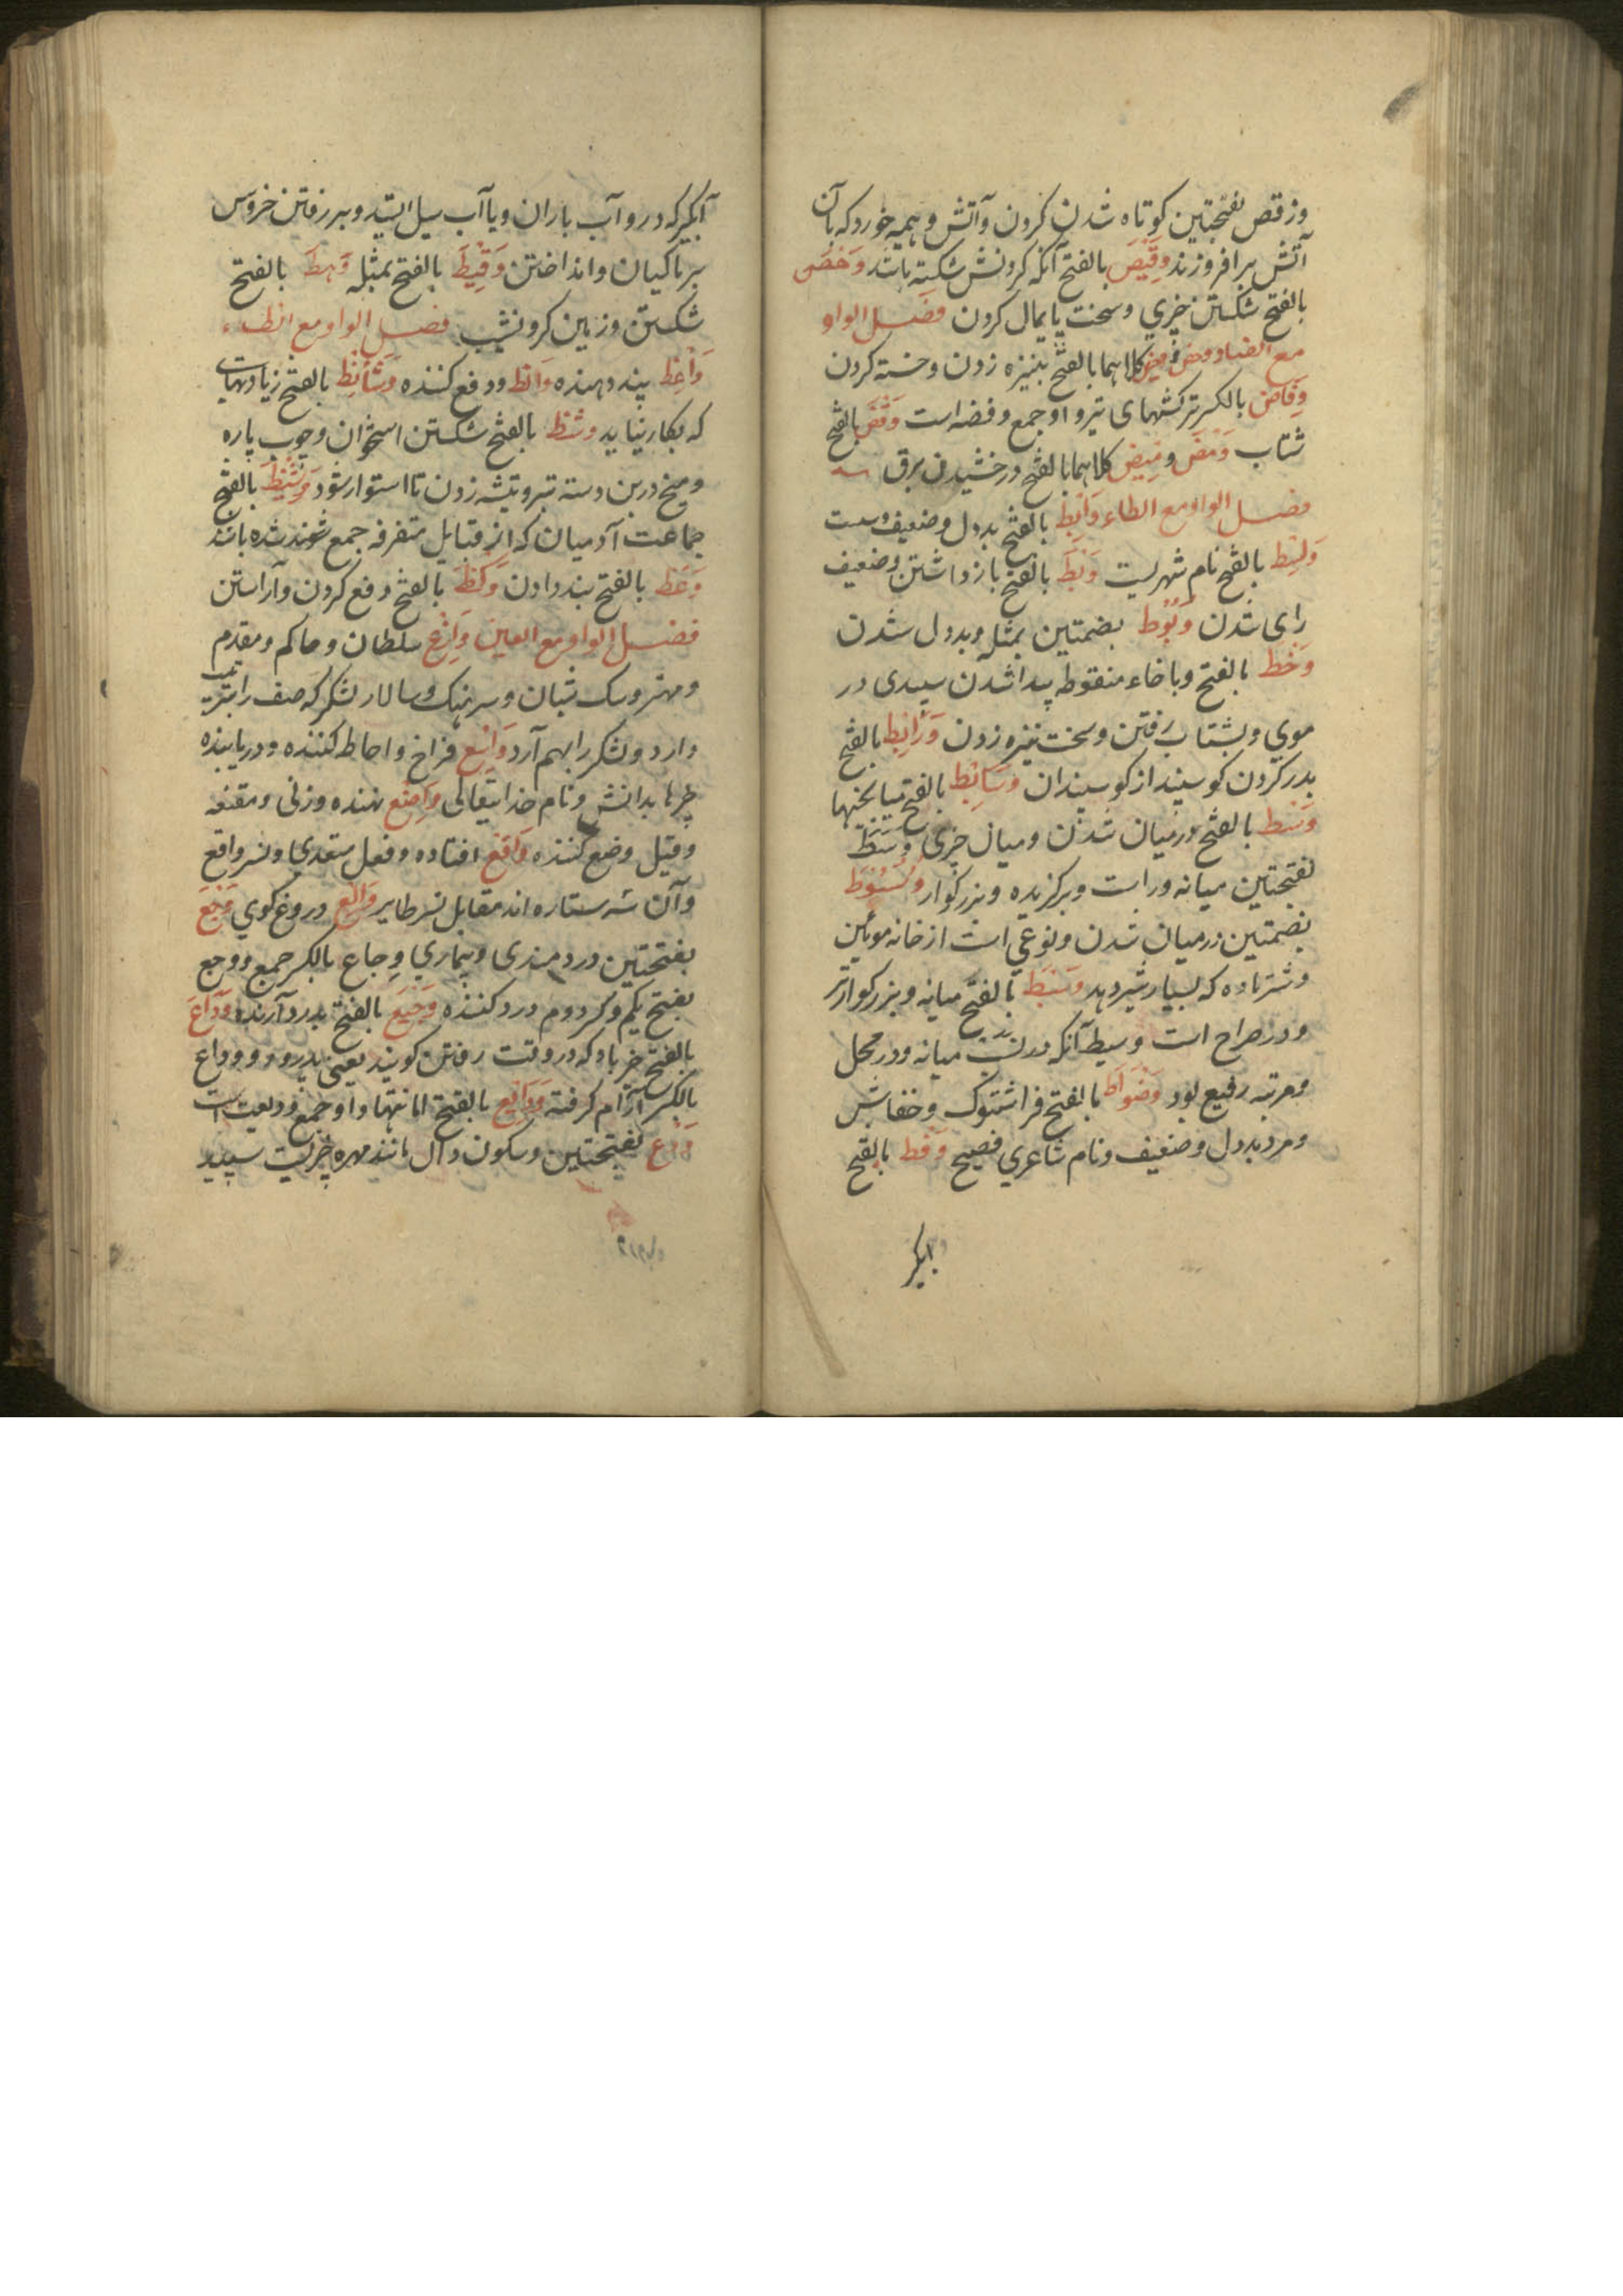 وزقص بفتحتین کوتاه شدن کردن وآتش وهیمه خورد که بآن
آتش برافروزند وقیص بالفتح آنکه کردنش شکسته باشد
بالفتح شکستن چیزی وسخت پایمال کردن فصل الواو
مع الضاد وخض کلاهما بالفتح بنیزه زدن وخسته کردن
وفاض بالکسر ترکشهای تیر واو جمع وفضه است وفض بالفتح
شتاب ومض ومیض کلاهما بالفتح درخشیدن برق
فصل الواو مع الطاء وابط بالفتح بددل وضعیف وسست
بالفتح نام شهریست وبط بالفتح بازداشتن وضعیف
رای شدن وبوط بضمتین بمثله وبددل شدن
وخط بالفتح وباخاء منقوطه پیدا شدن سپیدی در
موی وبشتاب رفتن وسخت نیزه زدن بالفتح
بدر کردن کوسپند از کوسپندان وسائط بالفتح میانجیها
وسط بالفتح درمیان شدن ومیان چیزی وسط
بفتحتین میانه وراست وبرکزیده وبزرکوار وسوط
بضمتین درمیان شدن ونوعی است از خانه موئین
وشتر ماده که بسیار شیر دهد وسط بالفتح میانه وبزرکوارتر
ودر صراح است وسیط آنکه در نسب میانه ودر محل
ومرتبه رفیع بود وطواط بالفتح فراشتوک وخفاش
ومرد بددل وضعیف ونام شاعری فصیح وقط بالفتح
ابکیر
آبکیر که درو آب باران ویا آب سیل ایستد وبر رفتن خروس
بر ماکیان وانداختن وقیط بالفتح بمثله وهط بالفتح
شکستن وزمین کرو نشیب فصل الواو مع الظاء
واعظ پند دهنده واکظ ودفع کننده وشائظ بالفتح زیادتیهای
که بکار نیاید وشظ بالفتح شکستن استخوان وچوب پاره
ومیخ در بن دسته تبر وتیشه زدن تا استوار شود وشیظ بالفتح
جماعت آدمیان که از قبایل متفرقه جمع شده باشند
وعظ بالفتح پند دادن وکظ بالفتح دفع کردن وآراستن
فصل الواو مع العین وازع سلطان وحاکم ومقدم
ومهتر وسک شبان وسرهنک وسالار لشکر که صف را بترتیب
دارد ولشکر را بهم آرد واسع فراخ واحاطه کننده ودریابنده
چیزها بدانش ونام خدایتعالی واضع نهنده وزنی ومقنعه
وقیل وضع کننده واقع افتاده وفعل متعدی ونسر واقع
وآن سه ستاره اند مقابل نسر طایر والع دروغ کوی وجع
بفتحتین دردمندی وبیماری وجاع بالکسر جمع ووجع
بفتح یکم وکسر دوم درد کننده وجیع بالفتح بدرد آرنده وداع
بالفتح خیر باد که در وقت رفتن کویند یعنی بدرود ووداع
بالکسر آرام کرفته ودائع بالفتح امانتها واو جمع ودیعت است
ودع بفتحتین وسکون دال مانند مهره چیزیست سپید